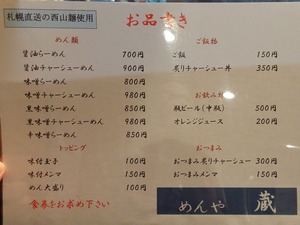 札幌直送の西山麺使用
お品書き
めん類
醤油らーめん 700円
醤油チャーシューめん 900円
味噌らーめん 800円
味噌チャーシューめん 980円
黒味噌らーめん 850円
黒味噌チャーシューめん 980円
辛味噌らーめん 850円
トッピング
味付玉子 100円
味付メンマ 150円
めん大盛り 100円
食券をお求め下さい
ご飯物
ご飯 150円
炙りチャーシュー丼 350円
お飲み物
瓶ビール(中瓶) 500円
オレンジジュース 200円
おつまみ
おつまみ炙りチャーシュー 300円
おつまみメンマ 150円
めんや 蔵